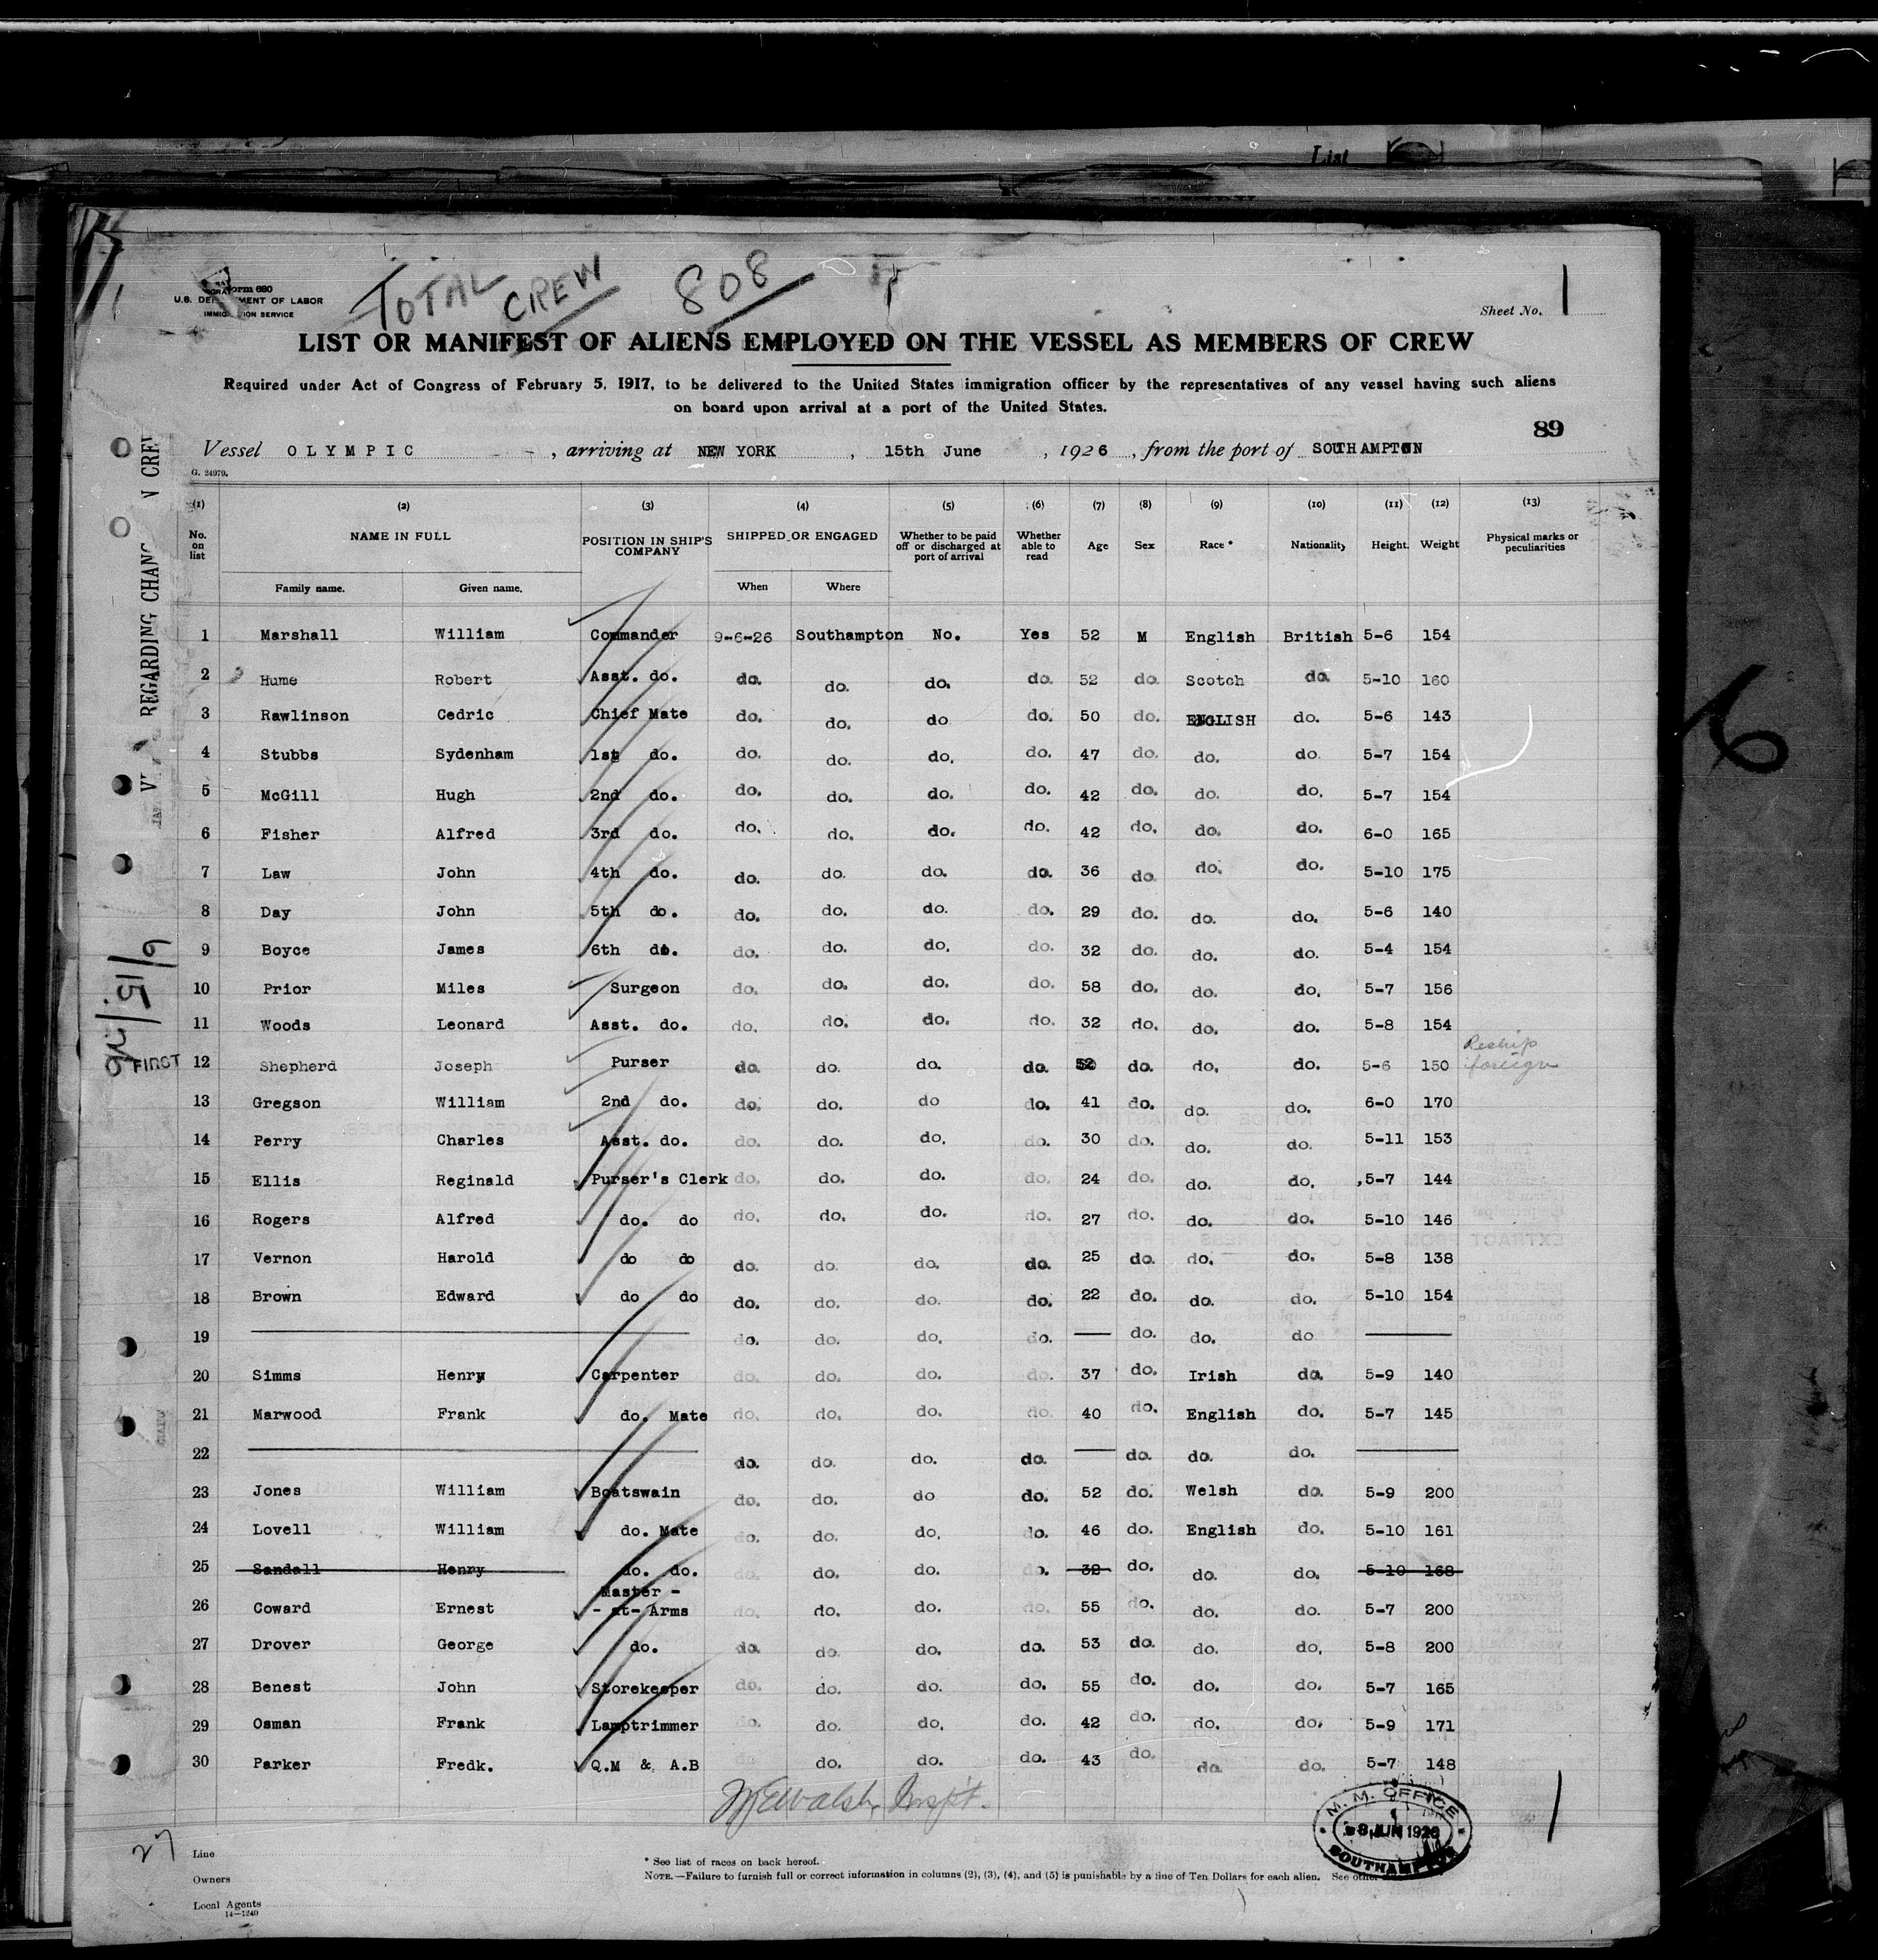 List
TOTAL CREW 808
Form 680
U.S. DEPARTMENT OF LABOR
IMMIGRATION SERVICE
Sheet No. 1
LIST OR MANIFEST OF ALIENS EMPLOYED ON THE VESSEL AS MEMBERS OF CREW
Required under Act of Congress of February 5, 1917, to be delivered to the United States immigration officer by the representatives of any vessel having such aliens
on board upon arrival at a port of the United States.
89
Vessel OLYMPIC, arriving at NEW YORK, 15th June, 1926, from the port of SOUTHAMPTON
G. 24979.
(1) (2) (3) (4) (5) (6) (7) (8) (9) (10) (11) (12) (13)
No. on list NAME IN FULL POSITION IN SHIP'S COMPANY SHIPPED OR ENGAGED Whether to be paid off or discharged at port of arrival Whether able to read Age Sex Race * Nationality Height. Weight Physical marks or peculiarities
Family name. Given name. When Where
1 Marshall William Commander 9-6-26 Southampton No. Yes 52 M English British 5-6 154
2 Hume Robert Asst. do. do. do. do. do. 52 do. Scotch do. 5-10 160
3 Rawlinson Cedric Chief Mate do. do. do do. 50 do. ENGLISH do. 5-6 143
4 Stubbs Sydenham 1st do. do. do. do. do. 47 do. do. do. 5-7 154
5 McGill Hugh 2nd do. do. do. do. do. 42 do. do. do. 5-7 154
6 Fisher Alfred 3rd do. do. do. do. do. 42 do. do. do. 6-0 165
7 Law John 4th do. do. do. do. do. 36 do. do. do. 5-10 175
8 Day John 5th do. do. do. do. do. 29 do. do. do. 5-6 140
9 Boyce James 6th do. do. do. do. do. 32 do. do. do. 5-4 154
10 Prior Miles Surgeon do. do. do. do. 58 do. do. do. 5-7 156
11 Woods Leonard Asst. do. do. do. do. do. 32 do. do. do. 5-8 154
FIRST 12 Shepherd Joseph Purser do. do. do. do. 52 do. do. do. 5-6 150 Reship foreign
13 Gregson William 2nd do. do. do. do do. 41 do. do. do. 6-0 170
14 Perry Charles Asst. do. do. do. do. do. 30 do. do. do. 5-11 153
15 Ellis Reginald Purser's Clerk do. do. do. do. 24 do. do. do. 5-7 144
16 Rogers Alfred do. do do. do. do. do. 27 do. do. do. 5-10 146
17 Vernon Harold do do do. do. do. do. 25 do. do. do. 5-8 138
18 Brown Edward do do do. do. do. do. 22 do. do. do. 5-10 154
19 do. do. do. do. — do. do. do —
20 Simms Henry Carpenter do. do. do. do. 37 do. Irish do. 5-9 140
21 Marwood Frank do. Mate do. do. do. do. 40 do. English do. 5-7 145
22 do. do. do. do. — do. do. do. —
23 Jones William Boatswain do. do. do do. 52 do. Welsh do. 5-9 200
24 Lovell William do. Mate do. do. do. do. 46 do. English do. 5-10 161
25 Sendall Henry do. do. do. do. do. do. 32 do. do. do. 5-10 168
26 Coward Ernest Master - - at- Arms do. do. do. do. 55 do. do. do. 5-7 200
27 Drover George do. do. do. do. do. 53 do. do. do. 5-8 200
28 Benest John Storekeeper do. do. do. do. 55 do. do. do. 5-7 165
29 Osman Frank Lamptrimmer do. do. do. do. 42 do. do. do. 5-9 171
30 Parker Fredk. Q.M & A.B do. do. do. 43 do. do. do. 5-7 148
Walsh, Inspt.
M. M. OFFICE
8 JUN 1926
SOUTHAMPTON
27
Line
Owners
Local Agents
14-1240
* See list of races on back hereof.
NOTE.—Failure to furnish full or correct information in columns (2), (3), (4), and (5) is punishable by a fine of Ten Dollars for each alien. See other
REGARDING CHANG
N CREW
6/15/26
6